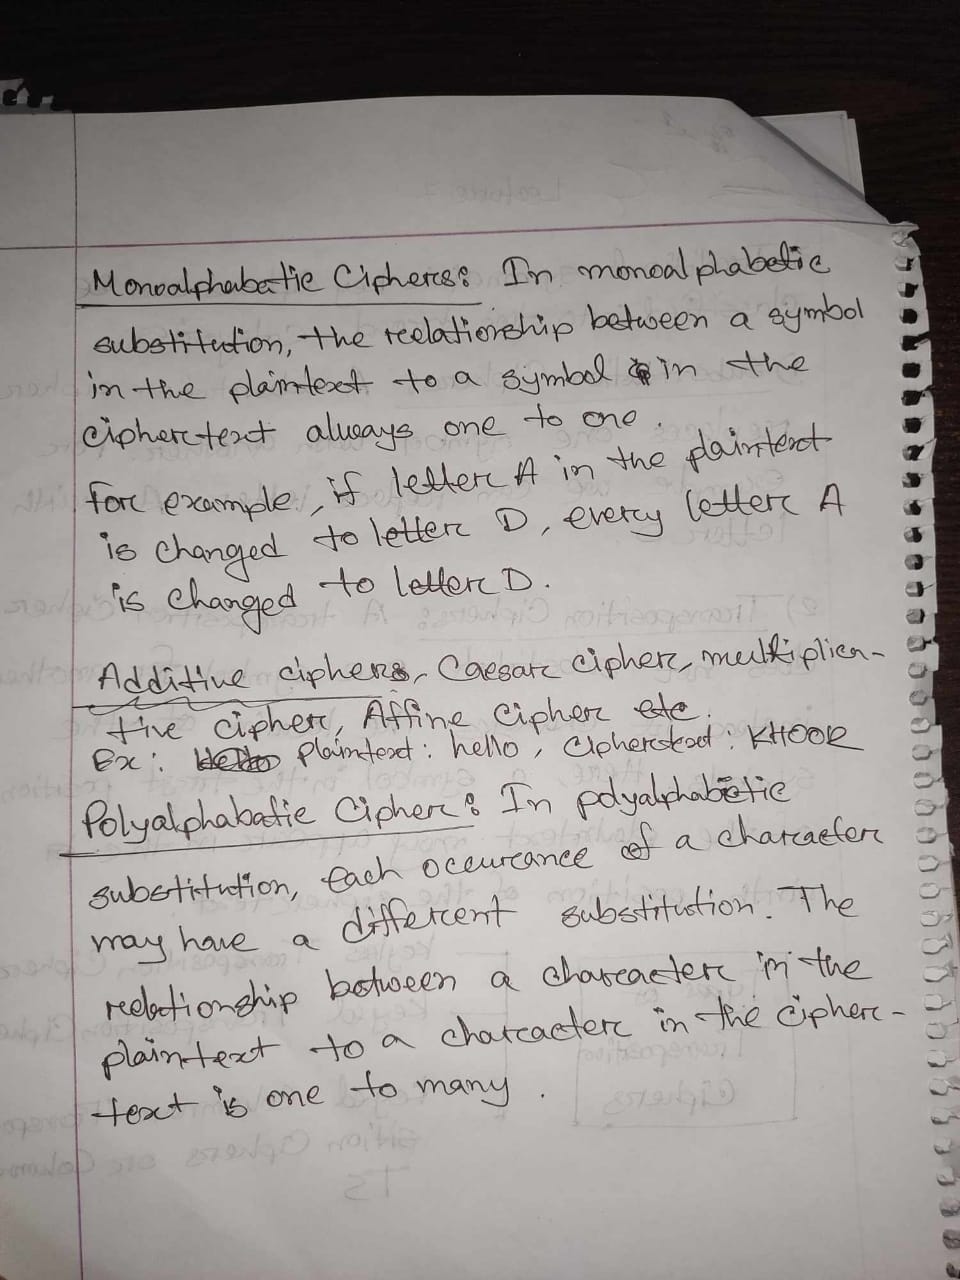 Monoalphabatic Ciphers: In monoalphabetic
substitution, the relationship between a symbol
in the plaintext to a symbol in the
ciphertext always one to one.
for example, if letter A in the plaintext
is changed to letter D, every letter A
is changed to letter D.
Additive ciphers, Caesar cipher, multiplica-
tive cipher, Affine cipher etc.
Ex: plaintext: hello, Ciphertext: KHOOR
Polyalphabatic Cipher: In polyalphabetic
substitution, each occurance of a character
may have a different substitution. The
relationship between a character in the
plaintext to a character in the cipher-
text is one to many.